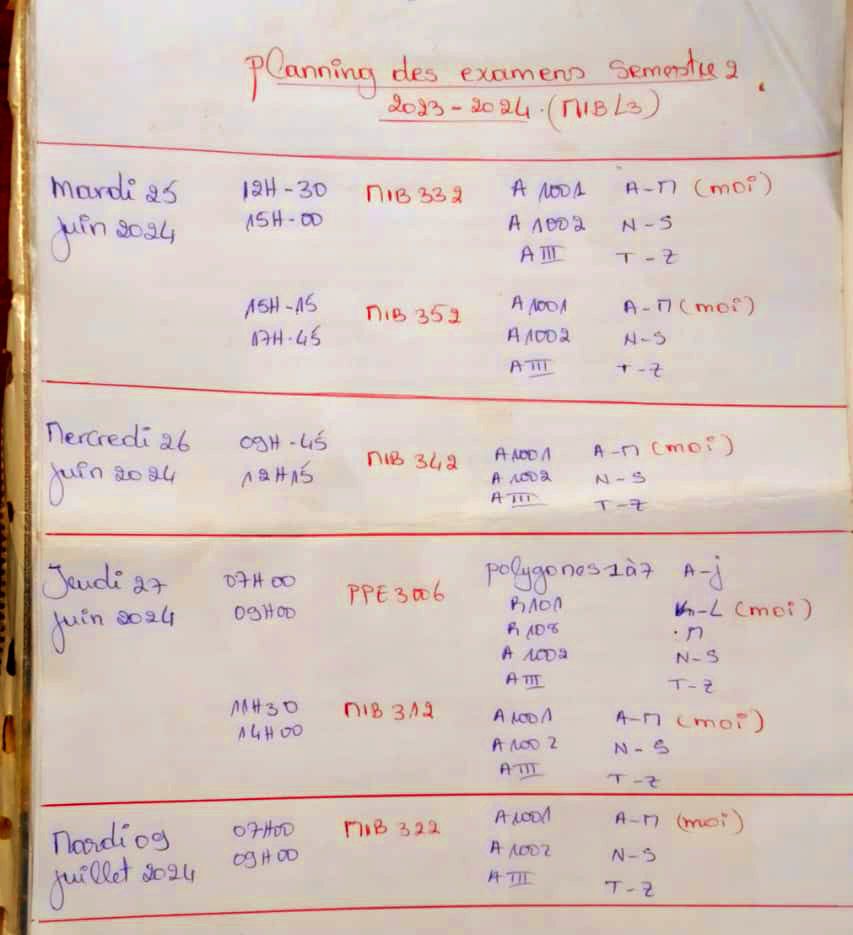 planning des examens Semestre 2
2023-2024.(MIB L3)
Mardi 25 12H-30 MIB 332 A 1001 A-M (moi)
juin 2024 15H-00 A 1002 N-S
A III T-Z
15H-15 MIB 352 A 1001 A-M (moi)
17H-45 A 1002 N-S
A III T-Z
Mercredi 26 09H-45 MIB 342 A 1001 A-M (moi)
juin 2024 12H15 A 1002 N-S
A III T-Z
Jeudi 27 07H00 PPE 3006 polygones 1à7 A-j
juin 2024 09H00 R101 K-L (moi)
R108 M
A 1002 N-S
A III T-Z
11H30 MIB 312 A 1001 A-M (moi)
14H00 A 1002 N-S
A III T-Z
Mardi 09 07H00 MIB 322 A 1001 A-M (moi)
juillet 2024 09H00 A 1002 N-S
A III T-Z